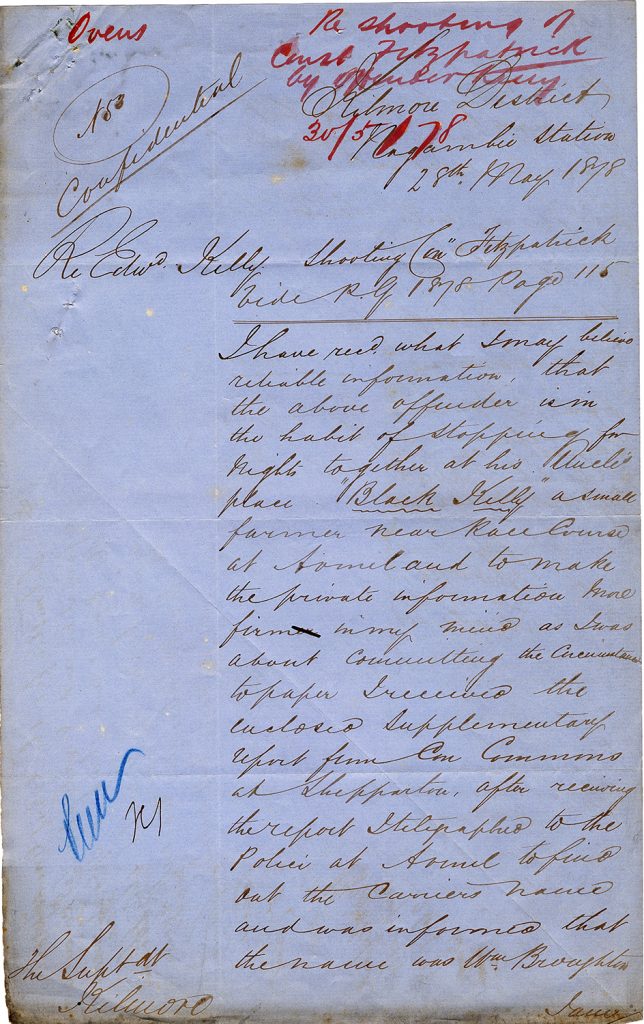 Ovens
Re shooting of
Const Fitzpatrick
by offender Kelly
30/5/78
No 3
Confidential
Kilmore District
Nagambie Station
28th May 1878
Re Edwd. Kelly shooting Con Fitzpatrick
Vide P.G 1878 Page 115
I have recd. what I may believe
reliable information, that
the above offender is in
the habit of stopping for
nights together at his Uncle's
place "Black Kelly" a small
farmer near Race Course
at Avenel and to make
the private information more
firm in my mind as I was
about committing the circumstances
to paper I received the
enclosed supplementary
report from Con Commons
at Shepparton, after receiving
the report I telegraphed to the
Police at Avenel to find
out the Carriers name
and was informed that
the name was Wm Broughton
The Supt dt
Kilmore
James